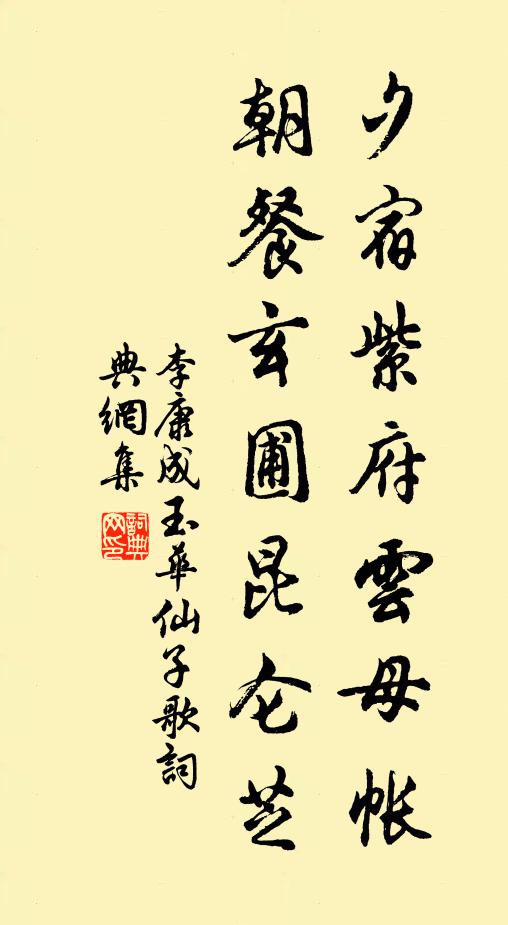 夕宿紫府雲母帳
朝餐玄圃昆仑芝
李康成玉華仙子歌詞
典網集
詞典网印